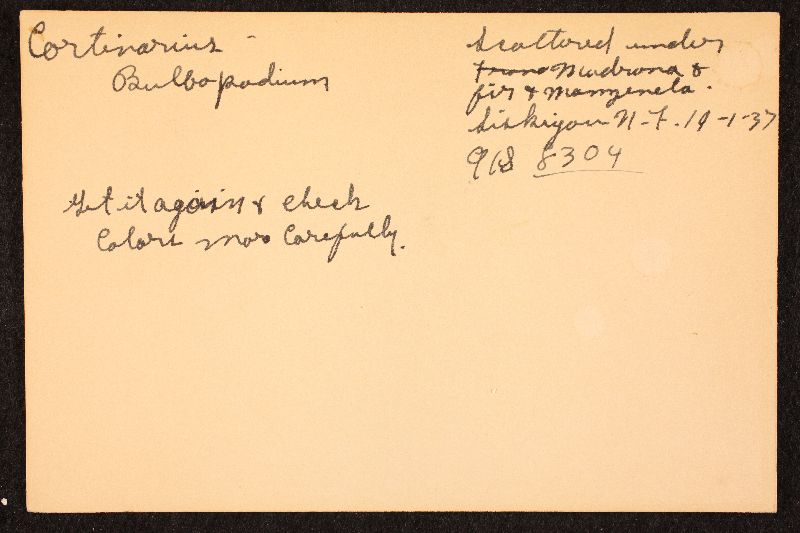 Cortinarius -
Bulbopodium
Scattored under
from Madrona &
fir & Manzenela.
Siskiyou N. F. 10-1-37
918 8304
Get it again & check
Colors mor Carefully.